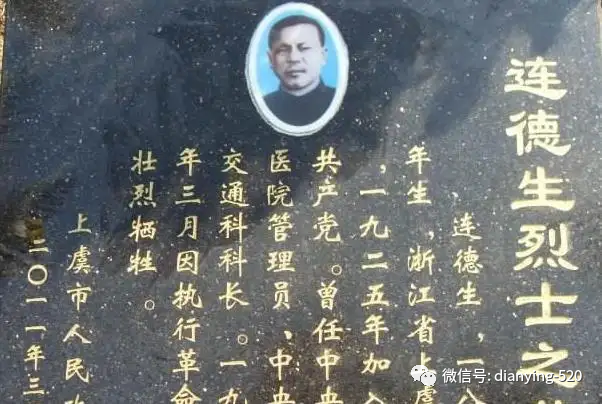 连德生烈士之
连德生，一八
年生，浙江省上虞
，一九二五年加入
共产党。曾任中央
医院管理员、中央
交通科科长。一九
年三月因执行革命
壮烈牺牲。
上虞市人民
二〇一一年三
微信号: dianying-520